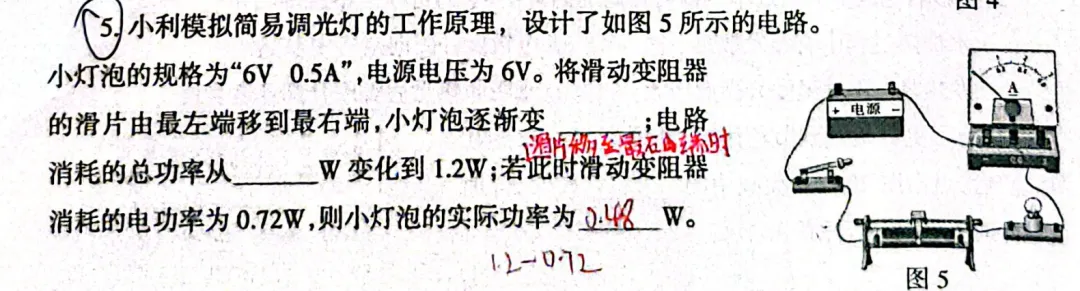 图4
5.小利模拟简易调光灯的工作原理，设计了如图5所示的电路。
小灯泡的规格为“6V 0.5A”,电源电压为6V。将滑动变阻器
的滑片由最左端移到最右端,小灯泡逐渐变______;电路
滑片移至最右端时
消耗的总功率从______W变化到1.2W;若此时滑动变阻器
消耗的电功率为0.72W,则小灯泡的实际功率为0.48W。
1.2-0.72
A
+ 电源 -
图5